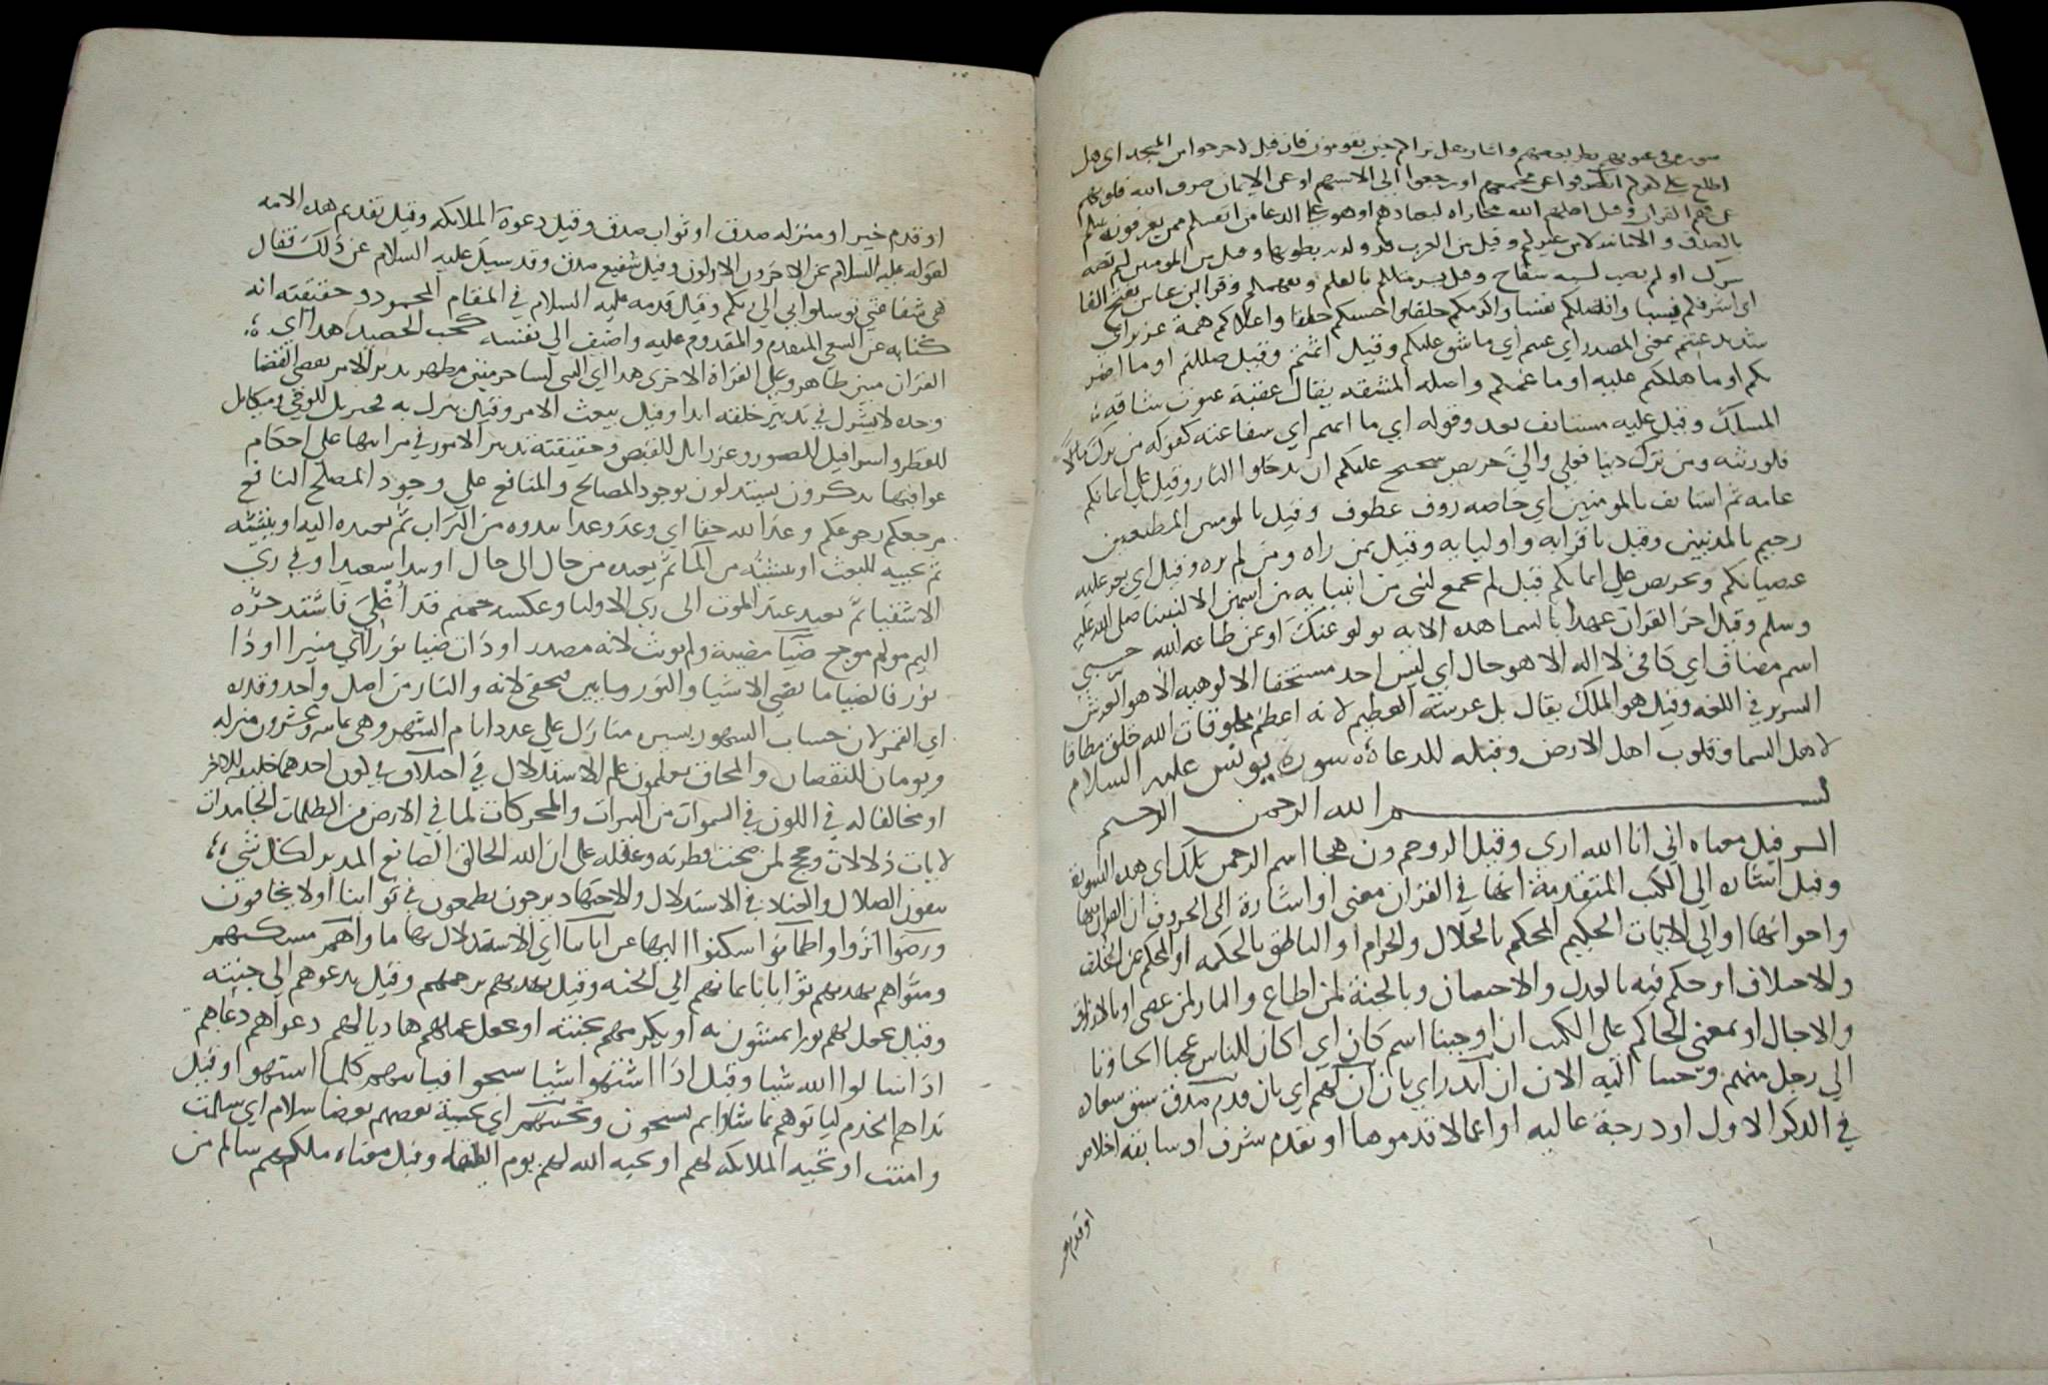 سوره في عيوبهم نظر بعضهم و اشار هل يراكم حين تقومون فان قيل لاخرجوا من المسجد اي هل
اطلع على انصرفوا عن مجمعهم او رجعوا الى الانسهم او عن الايمان صرف الله قلوبهم
عن فهم القران و قيل اضلهم الله مجازاه لهم او هو على الدعا من انفسكم ممن يعرفونه
بالصدق و الامانه لا من غيركم و قيل من العرب و قيل من المومنين لم يصبه
شرك او لم يصب نسبه سفاح و قيل بشر مثلكم و قرا ابن عباس بفتح الفا
اي اشرفكم نسبا و افضلكم نفسا و اكرمكم خلقا و احسنكم خلقا و اعلاكم همة عزيز اي
شديد عنتم بمعنى المصدر اي عنتكم اي ما شق عليكم و قيل اثمتم و قيل ضللتم او ما اضر
بكم او ما اهلككم عليه او ما غمكم و اصله المشقه يقال عقبة عنوت شاقة
المسلك و قيل عليه مستانف بعد و قوله اي ما اثمتم اي شفاعته كقوله من ترك مالا
فلورثته و من ترك دينا فعلي و الي حريص شحيح عليكم ان تدخلوا النار و قيل على ايمانكم
عامه ثم استانف بالمومنين اي خاصه روف عطوف و قيل بالمومنين المطيعين
رحيم بالمذنبين و قيل باقرابه و اوليايه و قيل بمن راه و من لم يره و قيل اي يعز عليه
عصيانكم و يحرص على ايمانكم قيل لم يجمع لنبي من انبيايه بين اسمين الا لنبينا صلى الله عليه
و سلم و قيل اخر القران عهدا بالسما هذه الايه تولوا عنك او عن طاعة الله حسبي
اسم مضاف اي كافي لا اله الا هو حال اي ليس احد مستحقا الالوهيه الا هو العرش
السرير في اللغه و قيل هو الملك يقال ثل عرشه العظيم لانه اعظم مخلوقات الله خلق مطافا
لاهل السما و قلوب اهل الارض و قبله للدعاة سورة يونس عليه السلام
بسم الله الرحمن الرحيم
الر قيل معناه اني انا الله ارى و قيل الر و حم و ن هجا اسم الرحمن تلك اي هذه السورة
و قيل اشاره الى الكتب المتقدمة انها في القران معنى او اشارة الى الحروف ان القران بها
و اخواتها او الى الايات الحكيم المحكم بالحلال و الحرام او الناطق بالحكمه او المحكم عن الخلف
و الاختلاف او حكم فيه بالعدل و الاحسان و بالجنة لمن اطاع و النار لمن عصى او بالارزاق
و الاجال او بمعنى الحاكم على الكتب ان اوحينا اسم كان اي اكان للناس عجبا ايحاونا
الى رجل منهم و حسا اليه الان ان انذر اي بان ان لهم اي بان قدم صدق سبق سعاده
في الذكر الاول او درجة عاليه او اعمالا قدموها او تقدم شرف او سابقه اخلاص
او قدم خير
او قدم خير او منزله صدق او ثواب صدق و قيل دعوة الملايكه و قيل تقديم هذه الامه
لقوله عليه السلام نحن الاخرون الاولون و قيل شفيع صدق و قد سيل عليه السلام عن ذلك فقال
هي شفاعتي توسلوا بي الى ربكم و قيل قدمه عليه السلام في المقام المحمود و حقيقته انه
كنايه عن السعي المتقدم و المقدوم عليه و اضيف الى نفسه كحب الحصيد هذا اي
القران مبين ظاهر و على القراة الاخرى هذا اي النبي لساحر مبين مظهر يدبر الامر يقضي القضا
وحده لا يشرك في تدبير خلقه احدا و قيل يبعث الامر و قيل ينزل به فجبريل للوحي و ميكايل
للقطر و اسرافيل للصور و عزرايل للقبض و حقيقته تدبير الامور في مراتبها على احكام
عواقبها تذكرون يستدلون بوجود المصالح و المنافع على وجود المصلح النافع
مرجعكم رجوعكم وعد الله حقا اي وعد وعدا يبدوه من التراب ثم يعيده اليه او ينشيه
ثم يحييه للبعث او ينشيه من الما ثم يعيده من حال الى حال او يبدا سعيدا و في زي
الاشقيا ثم يعيد عند الموت الى زي الاوليا و عكسه حميم قد اغلي فاشتد حره
اليم مولم موجع ضيا مضيية و لم يونث لانه مصدر او ذات ضيا نورا اي منيرا او ذا
نور فالضيا ما يضي الاشيا و النور ما يبين فيخفى لانه و النار من اصل واحد و قدره
اي القمر لان حساب الشهور بسير منازل على عدد ايام الشهر و هي ثمانيه و عشرون منزله
و يومان للنقصان و المحاق يعلمون علم الاستدلال في اختلاف في لون احدهما خليفه للاخر
او مخالفا له في اللون في السموات من النيرات و المتحركات لما في الارض من الظلمات الجامدات
لايات دلالات و حجج لمن صحت فطرته و عقله على ان الله الخالق الصانع المدبر لكل شي
يتقون الضلال و العناد في الاستدلال و الاجتهاد يرجون يطمعون في ثوابنا او لا يخافون
و رضوا اثروا و اطمانوا سكنوا اليها عن اياتنا اي الاستدلال بها ماواهم مسكنهم
و مثواهم يهديهم ثوابا بايمانهم الى الجنه و قيل يهديهم يرحمهم و قيل يدعوهم الى جنته
و قيل يجعل لهم نورا يمشون به او يكرمهم بجنته او يجعل عملهم هاديا لهم دعواهم دعاهم
اذا سالوا الله شيا و قيل اذا اشتهوا شيا سبحوا فياتيهم كلما اشتهوا و قيل
نداهم الخدم لياتوهم بما شاوا ثم يسبحون و تحيتهم اي تحية بعضهم بعضا سلام اي سلمت
و امنت او تحيه الملايكه لهم او تحيه الله لهم يوم القيامه و قيل معناه ملكهم سالم من